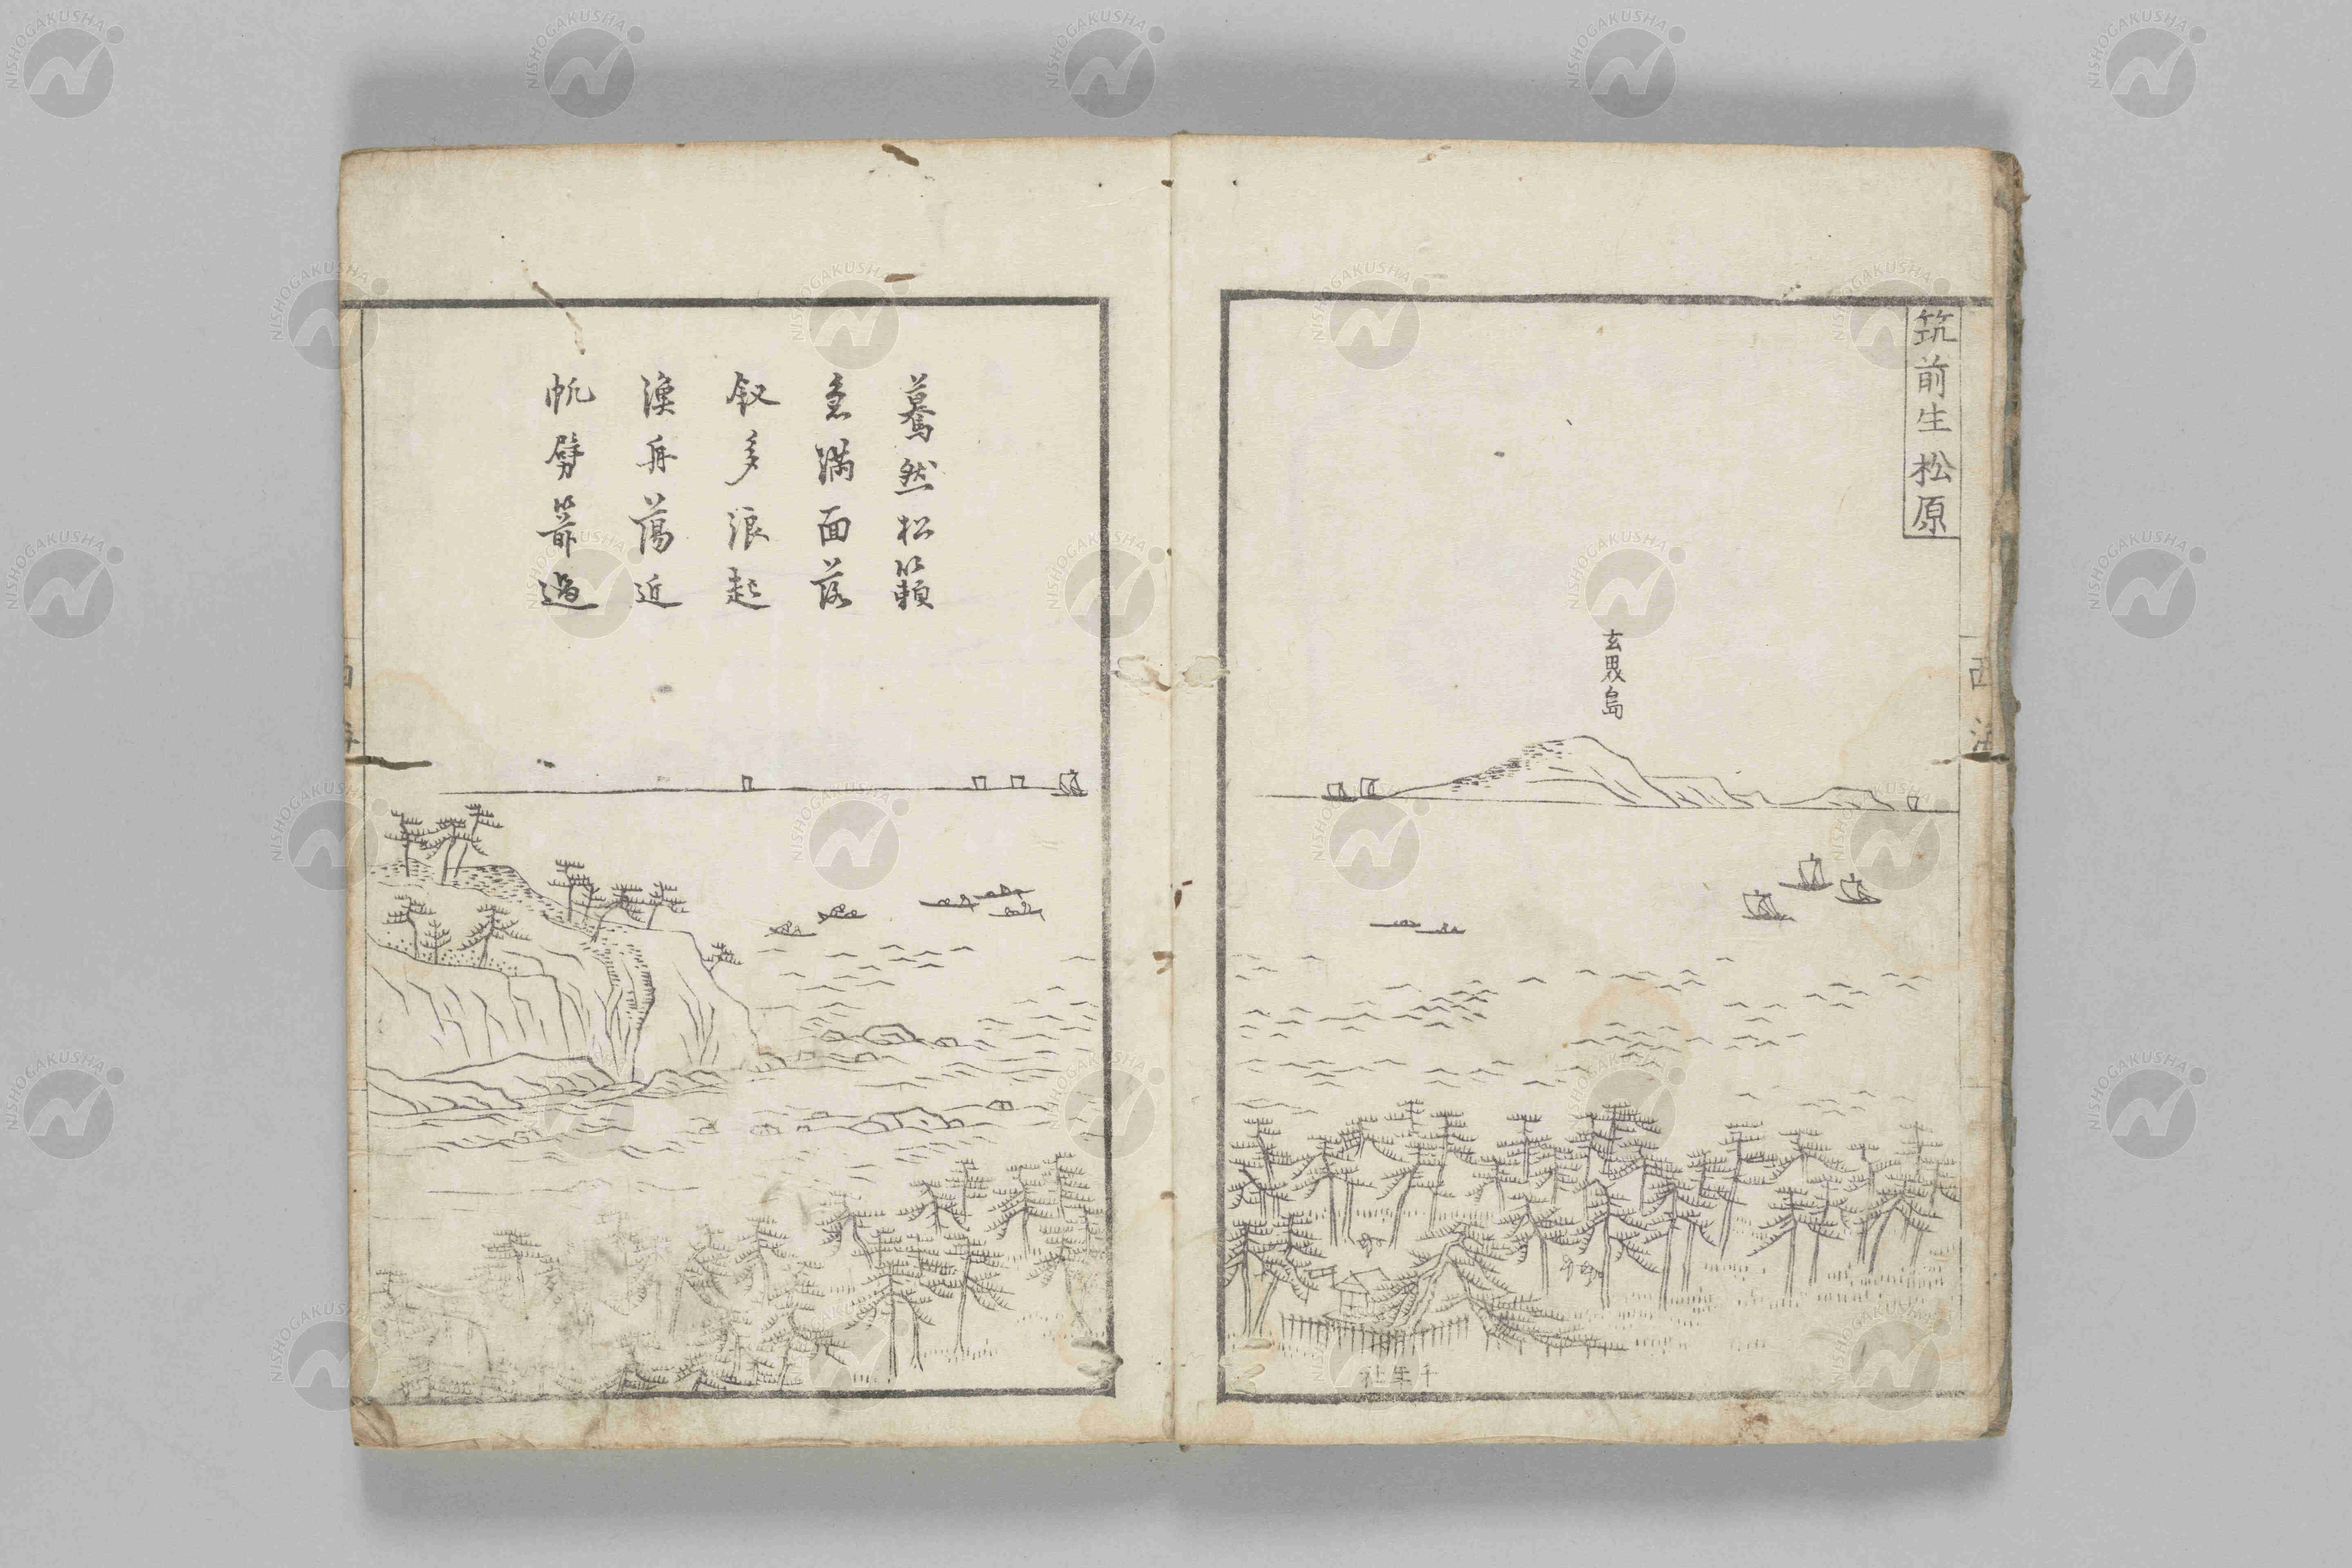 筑前生松原
玄界島
千年社
驀然松籟
急滿面落
釵多浪起
漁舟蕩近
帆劈箭過
西
NISHOGAKUSHA